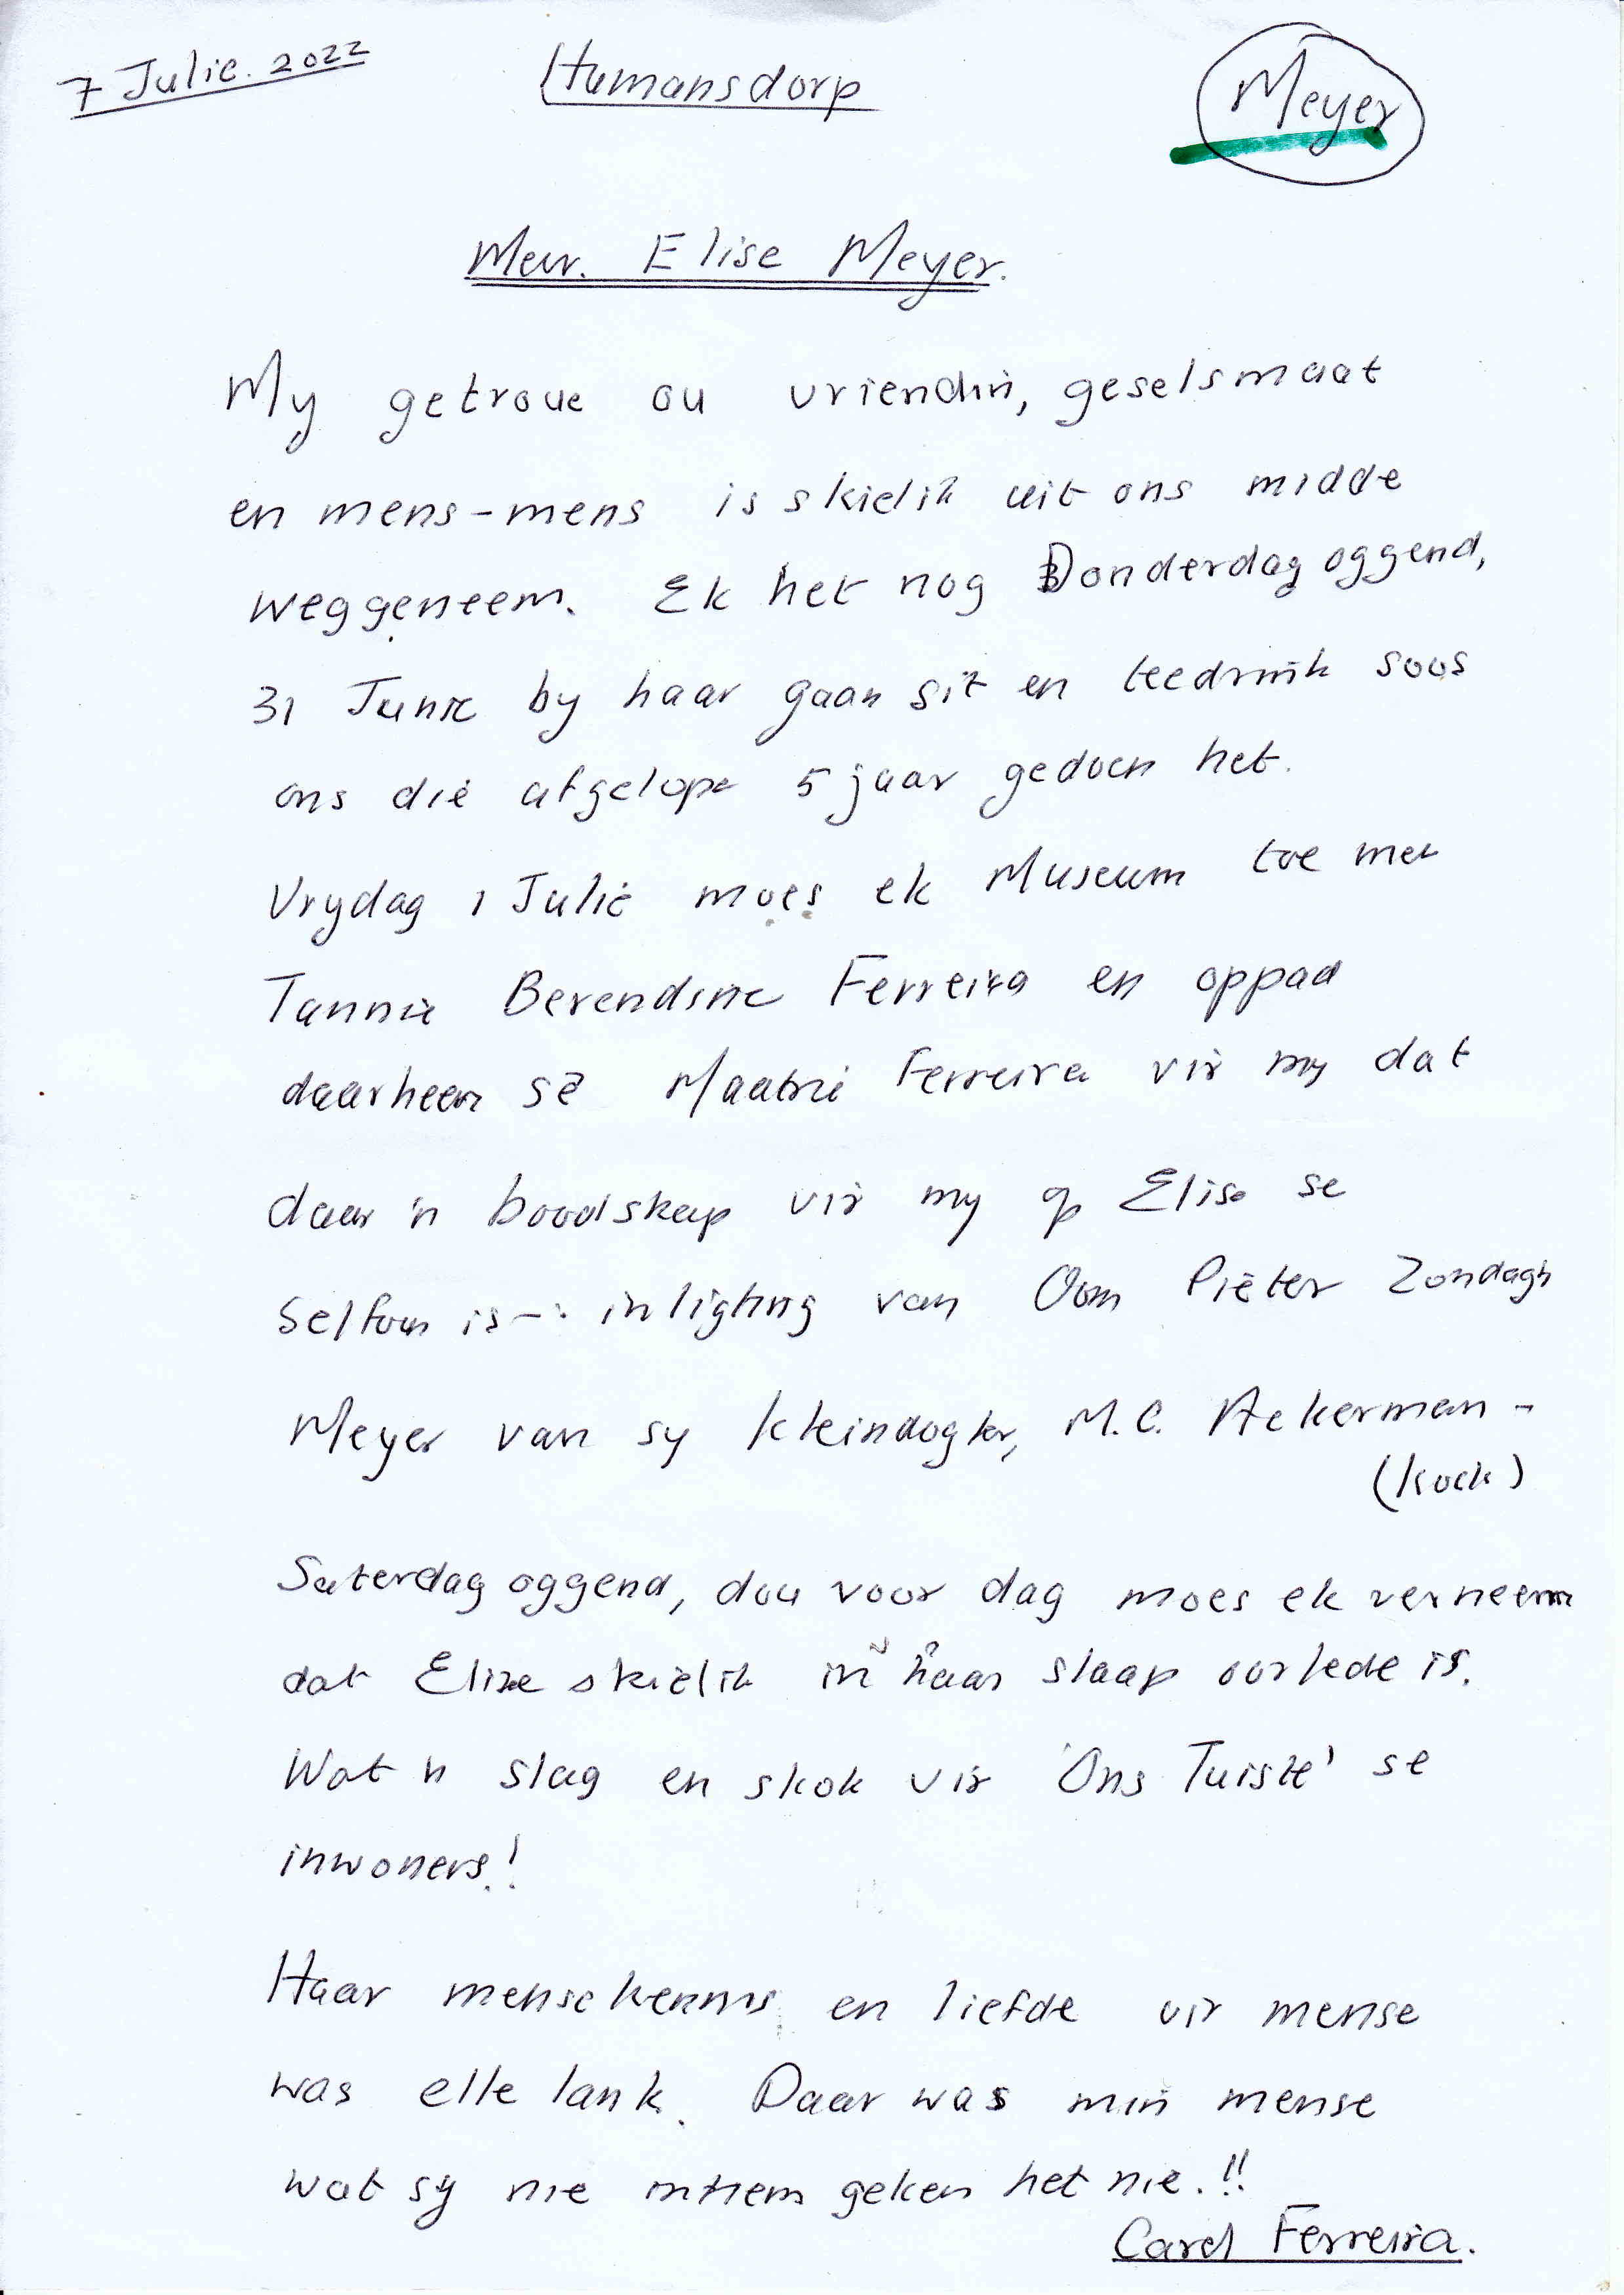 7 Julie. 2022
Humansdorp
Meyer
Mev. Elise Meyer.
My getroue ou vriendin, geselsmaat
en mens-mens is skielik uit ons midde
weggeneem. Ek het nog Donderdag oggend,
31 Junie by haar gaan sit en teedrink soos
ons die afgelope 5 jaar gedoen het.
Vrydag 1 Julie moes ek Museum toe met
Tannie Berendine Ferreira en oppad
daarheen sê Maatrie Ferreira vir my dat
daar 'n boodskap vir my op Elise se
selfoon is -: inligting van Oom Pieter Zondagh
Meyer van sy kleindogter, M.C. Ackerman -
(Kock)
Saterdag oggend, dou voor dag moes ek verneem
dat Elise skielik in haar slaap oorlede is.
Wat 'n slag en skok vir 'Ons Tuiste' se
inwoners!
Haar mensekennis en liefde vir mense
was elle lank. Daar was min mense
wat sy nie intiem geken het nie.!!
Carel Ferreira.